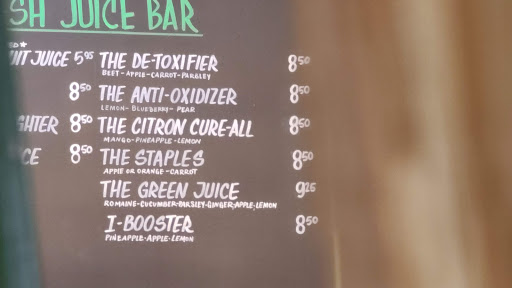 SH JUICE BAR
UIT JUICE 5⁹⁵ THE DE-TOXIFIER 8⁵⁰
BEET-APPLE-CARROT-PARSLEY
8⁵⁰ THE ANTI-OXIDIZER 8⁵⁰
LEMON-BLUEBERRY-PEAR
GHTER 8⁵⁰ THE CITRON CURE-ALL 8⁵⁰
MANGO-PINEAPPLE-LEMON
CE 8⁵⁰ THE STAPLES 8⁵⁰
APPLE OR ORANGE-CARROT
THE GREEN JUICE 9²⁵
ROMAINE-CUCUMBER-PARSLEY-GINGER-APPLE-LEMON
I-BOOSTER 8⁵⁰
PINEAPPLE-APPLE-LEMON